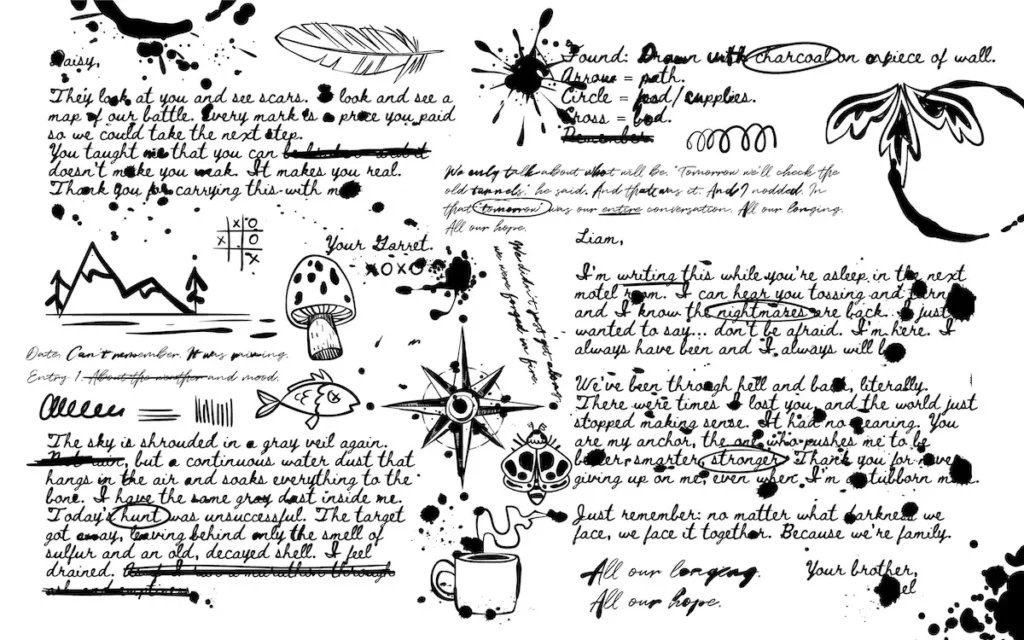 Daisy,
They look at you and see scars. I look and see a
map of our battle. Every mark is a price you paid
so we could take the next step.
You taught me that you can
doesn't make you weak. It makes you real.
Thank you for carrying this with me
Your Garret.
XOXO
X O
X O
X
Date: Can't remember. It was raining.
Entry 1. About the weather and mood.
The sky is shrouded in a gray veil again.
Not rain, but a continuous water dust that
hangs in the air and soaks everything to the
bone. I have the same gray dust inside me.
Today's hunt was unsuccessful. The target
got away, leaving behind only the smell of
sulfur and an old, decayed shell. I feel
drained. As if I ran a marathon through
ash and emptiness.
Found: Drawn with charcoal on a piece of wall.
Arrow = path.
Circle = food/supplies.
Cross = bad.
Remember:
We only talk about what will be. "Tomorrow we'll check the
old tunnels," he said. And that was it. And I nodded. In
that "tomorrow" was our entire conversation. All our longing.
All our hope.
We didn't just get along,
we were forged in fire.
Liam,
I'm writing this while you're asleep in the next
motel room. I can hear you tossing and turning
and I know the nightmares are back. I just
wanted to say... don't be afraid. I'm here. I
always have been and I always will be
We've been through hell and back, literally.
There were times I lost you, and the world just
stopped making sense. It had no meaning. You
are my anchor, the one who pushes me to be
better, smarter, stronger. Thank you for never
giving up on me, even when I'm a stubborn
Just remember: no matter what darkness we
face, we face it together. Because we're family.
All our longing.
All our hope.
Your brother,
el